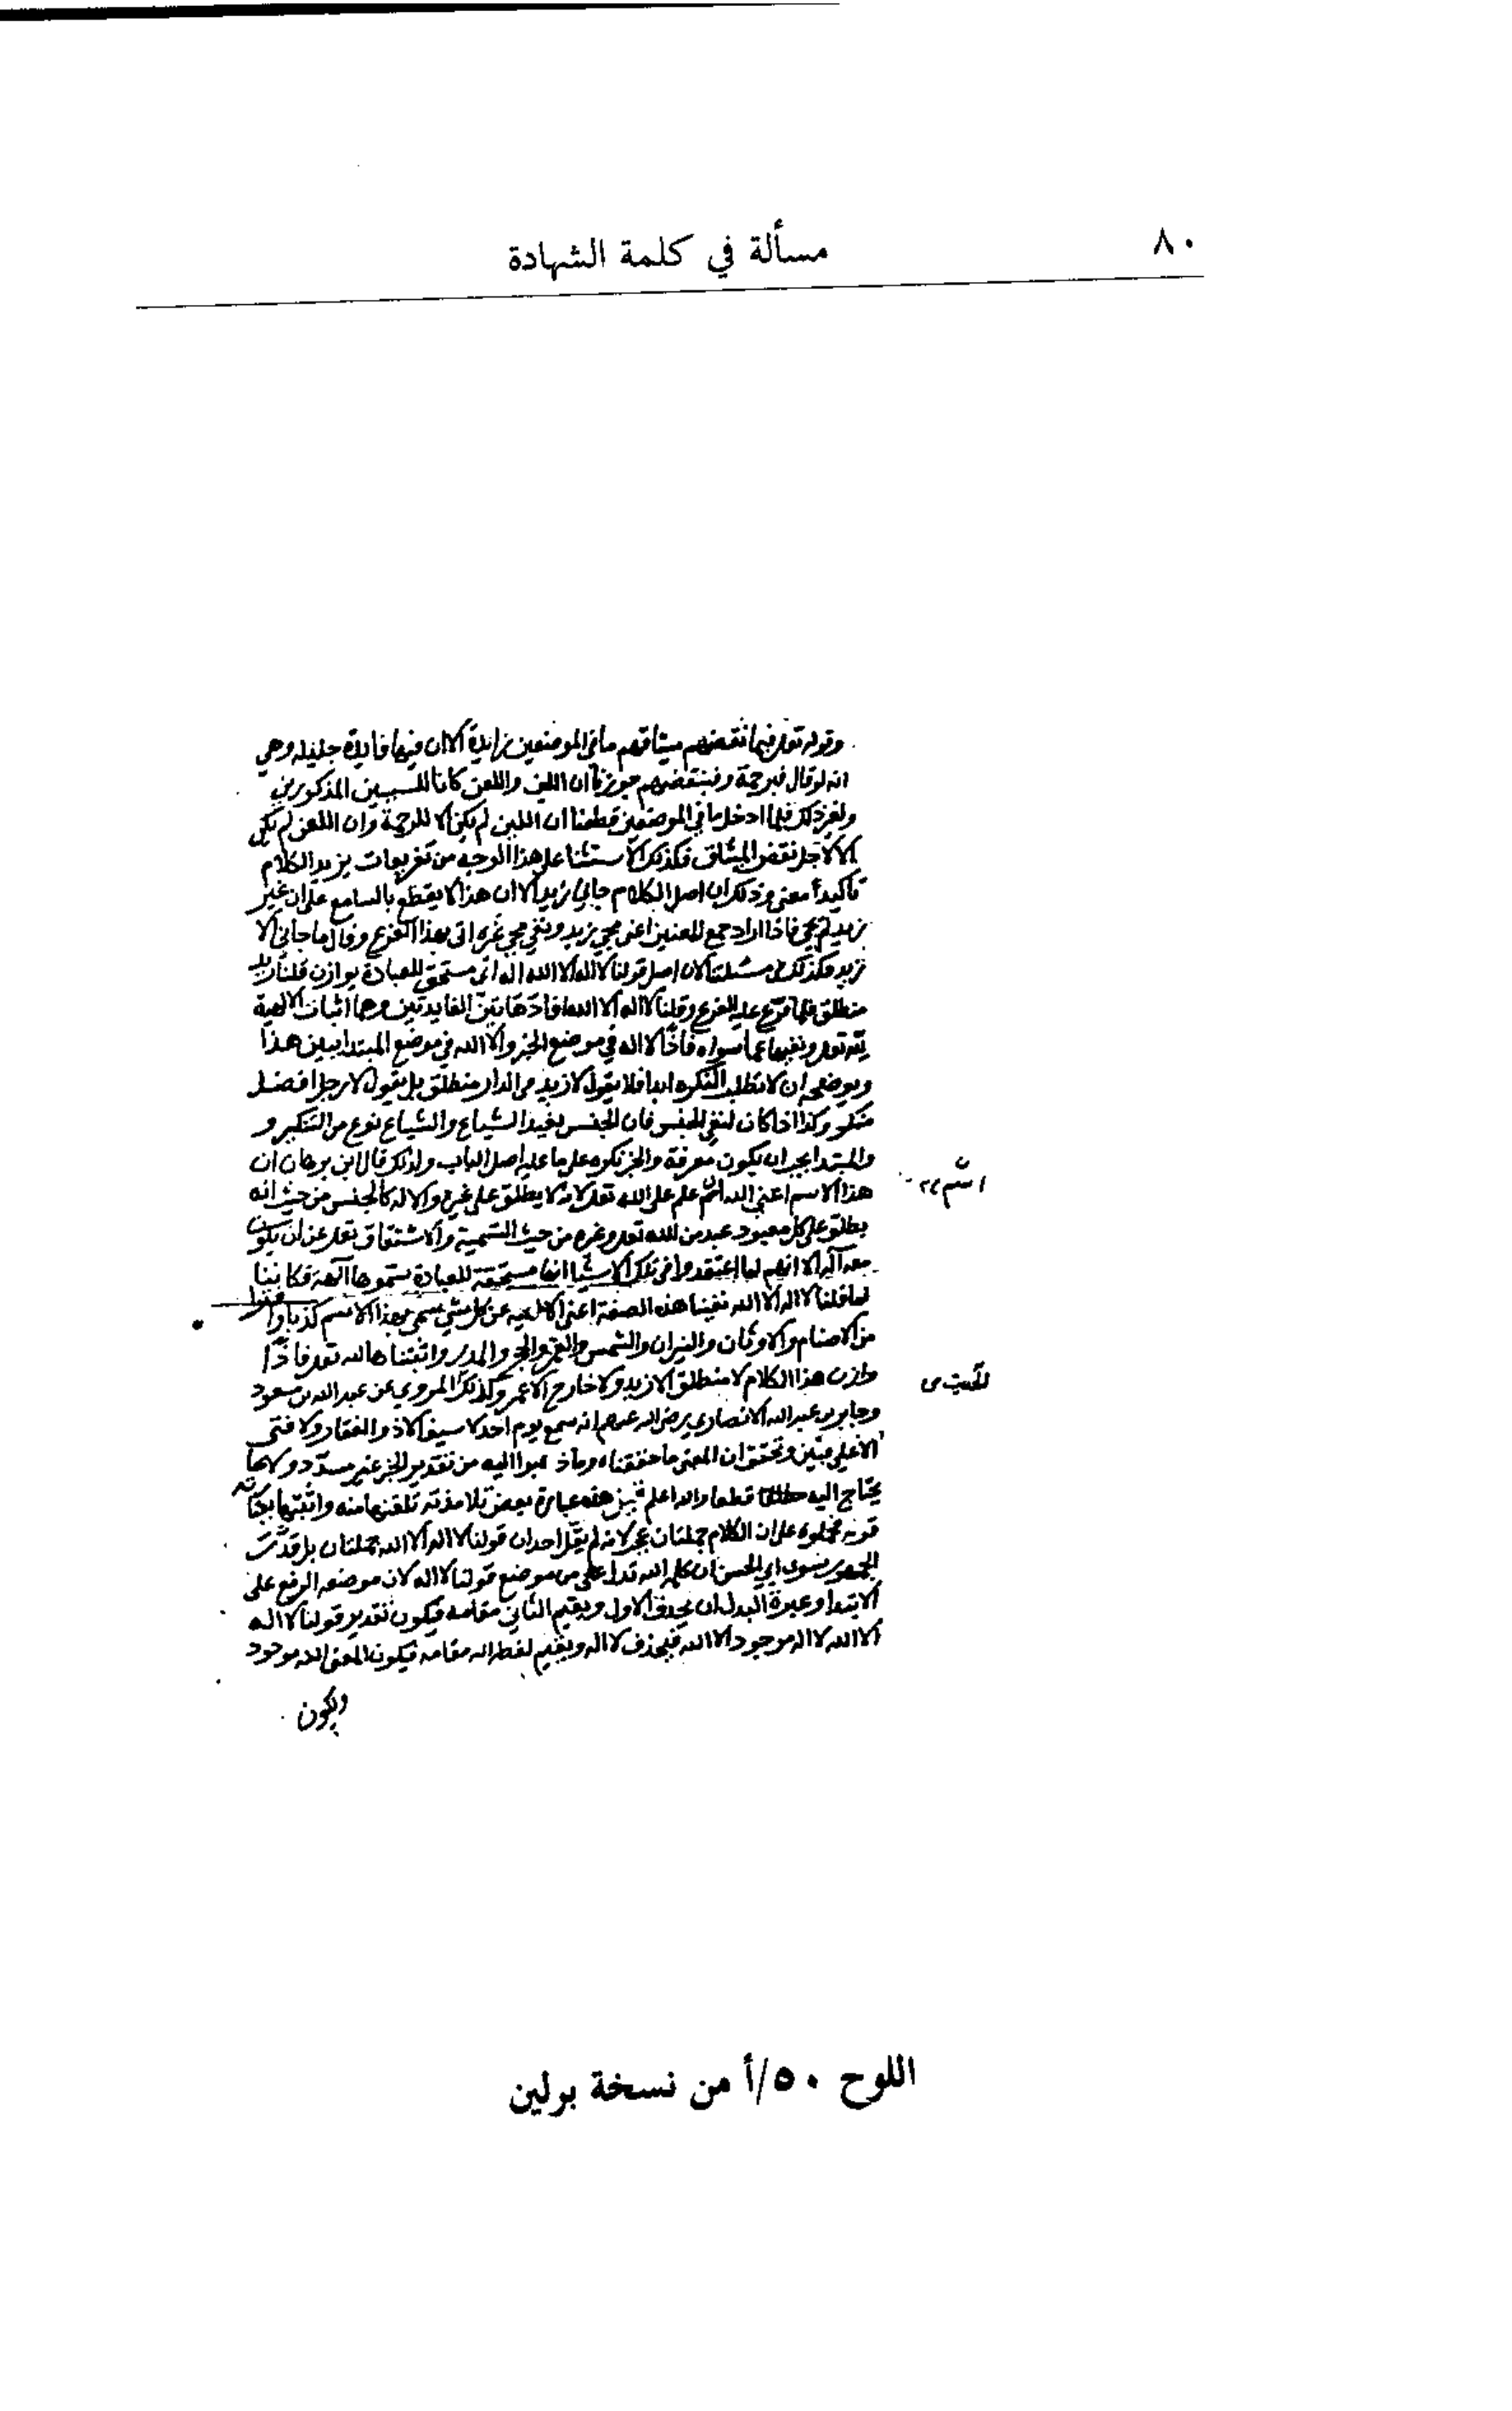 ٨٠
مسألة في كلمة الشهادة
وقوله تعلى فبما نقضهم ميثاقهم ما في الموضعين زايدة الا ان فيها فايدة جليله وهي
انه لو قال فبرحمة وفبنقضهم جوزنا ان اللين واللعن كانا للسببين المذكورين
ولغير ذلك فلما ادخل ما في الموضعين قطعنا ان اللين لم يكن الا للرحمة وان اللعن لم يكن
الا لاجل نقض الميثاق فكذلك الاستثنا على هذا الوجه من تفريعات يزيد الكلام
تاكيدا معنى وذلك ان اصل الكلام جاني زيد الا ان هذا لا يقطع بالسامع على ان غير
زيد لم يجي فاذا اراد جمع المعنيين اعني مجي زيد ونفي مجي غيره اتى بهذا الفرع وقال ما جاني الا
زيد وكذلك في مسئلتنا لان اصل قولنا لا اله الا الله الله اله اي مستحق للعبادة يوازن قلنا زيد
منطلق فلما فرع عليه الفرع وقلنا لا اله الا الله افاد هاتين الفايدتين وهما اثبات الالهية
لله تعلى ونفيها عما سواه فاذا لا اله في موضع الخبر والا الله في موضع المبتدا يبين هذا
ويوضحه ان لا تطلب النكره ابدا فلا يقول لا زيد في الدار منطلق بل يقول لا رجل افضل
منكم وكذا اذا كان لنفي الجنس فان الجنس يفيد الشياع والشياع نوع من التنكير و
والمبتدا يجب ان يكون معرفة والخبر نكره على ما عليه اصل الباب ولذلك قال ابن برهان ان
هذا الاسم اعني الله اسم علم على الله تعلى لانه لا يطلق على غيره والاله كالجنس من حيث انه
يطلق على كل معبود عبد من الله تعلى وغيره من حيث التسمية والاشتقاق تعلى عن ان يكون
معه اله الا انهم لما اعتقدوا في تلك الاشيا انها مستحقة للعبادة ستموها آلهة فكاننا
لما قلنا لا اله الا الله نفينا هذه الصفة اعني الالهيه عن كل شي سمي بهذا الاسم كذبا و
من الاصنام والاوثان والنيران والشمس والقمر والحجر والمدر واثبتناها لله تعلى فاذا
وازن هذا الكلام لا منطلق الا زيد ولا خارج الا عمرو وكذلك المروي عن عبد الله بن مسعود
وجابر بن عبد الله الانصاري رضي الله عنهم انه سمع يوم احد لا سيف الا ذو الفقار ولا فتى
الا علي فتبين وتحقق ان المعنى ما حققناه وما ذهبوا اليه من تقدير الخبر غير مسدد ولا مما
يحتاج اليه قطعا والله اعلم هذه عبارة بعض تلامذته تلقنها منه واثبتها
قوله على ان الكلام جملتان لانه لم يقل احد ان قولنا لا اله الا الله جملتان بل
الجمهور سوى ابي الحسن ان كلمة الله بدل على من موضع قولنا لا اله لان موضعه الرفع على
الابتدا وعبرة البدل ان يحذف الاول ويقيم الثاني مقامه فيكون تقدير قولنا لا اله
الا الله لا اله موجود الا الله فيحذف لا اله ويقيم لفظ الله مقامه فيكون المعنى الله موجود
ويكون
اللوح ٥٠/أ من نسخة برلين